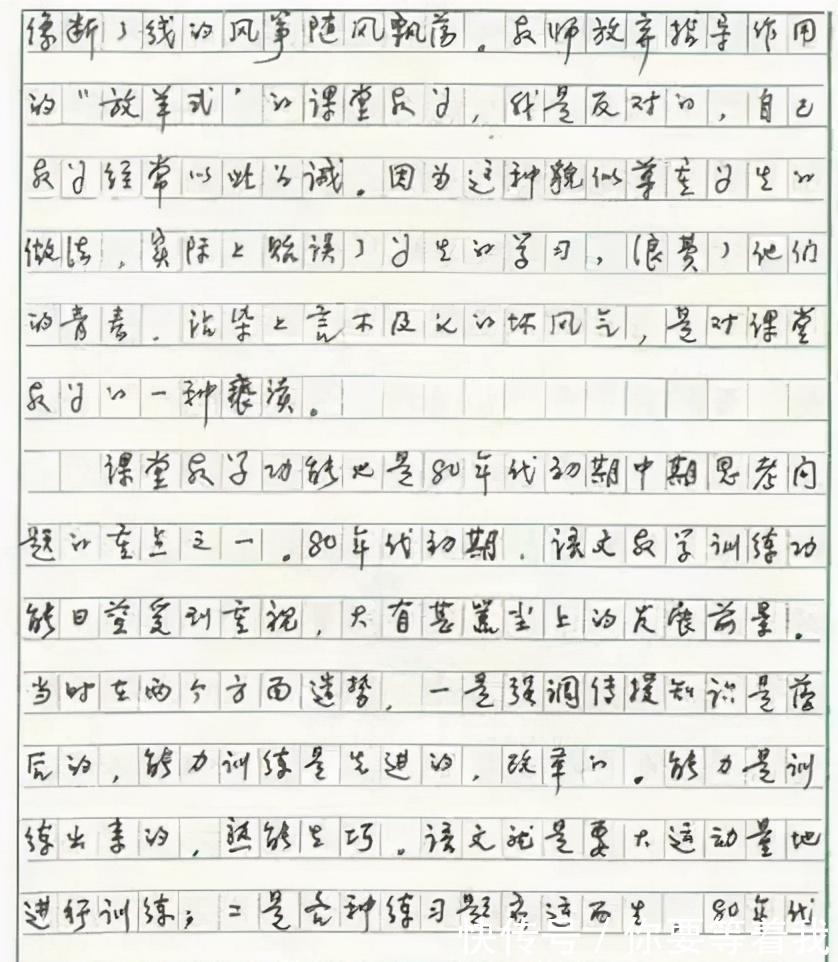 像断了线的风筝随风飘荡。教师放弃指导作用
的“放羊式”的课堂教学，我是反对的，自己
教学经常以此为诫。因为这种貌似尊重学生的
做法，实际上贻误了学生的学习，浪费了他们
的青春，沾染上言不及义的坏风气，是对课堂
教学的一种亵渎。
课堂教学功能也是80年代初期中期思考问
题的重点之一。80年代初期，语文教学训练功
能日益受到重视，大有甚嚣尘上的发展前景。
当时在两个方面造势，一是强调传授知识是落
后的，能力训练是先进的，改革的。能力是训
练出来的，熟能生巧。语文就是要大运动量地
进行训练；二是各种练习题应运而生 80年代
快传号 / 你要等着我